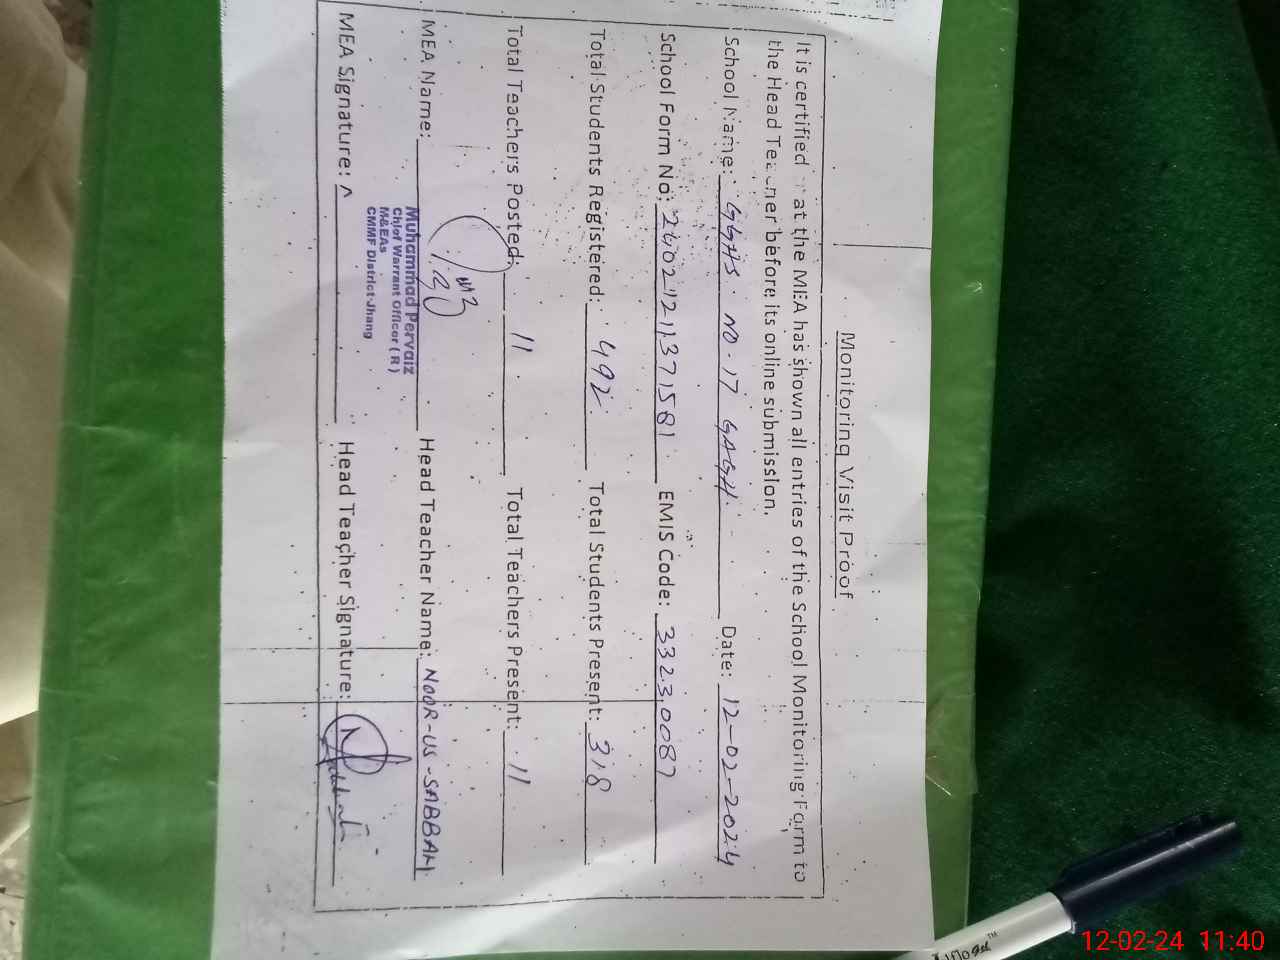 Monitoring Visit Proof
It is certified at the MEA has shown all entries of the School Monitoring Form to
the Head Teacher before its online submission.
School Name: GGHS NO. 17 Date: 12-02-2024
School Form No: 24021211371581 EMIS Code: 33230087
Total Students Registered: 492 Total Students Present: 318
Total Teachers Posted: 11 Total Teachers Present: 11
MEA Name: Head Teacher Name: NOOR-US-SABBAH
Muhammad Pervaiz
Chief Warrant Officer (R)
M&EAs
CMMF District Jhang
MEA Signature: Head Teacher Signature:
12-02-24 11:40